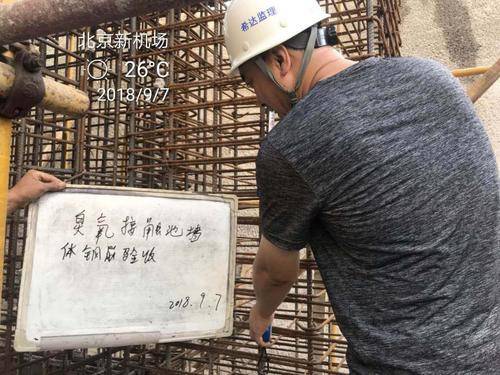 北京新机场
26°C
2018/9/7
希达监理
臭氧接触池墙
体钢筋验收
2018.9.7